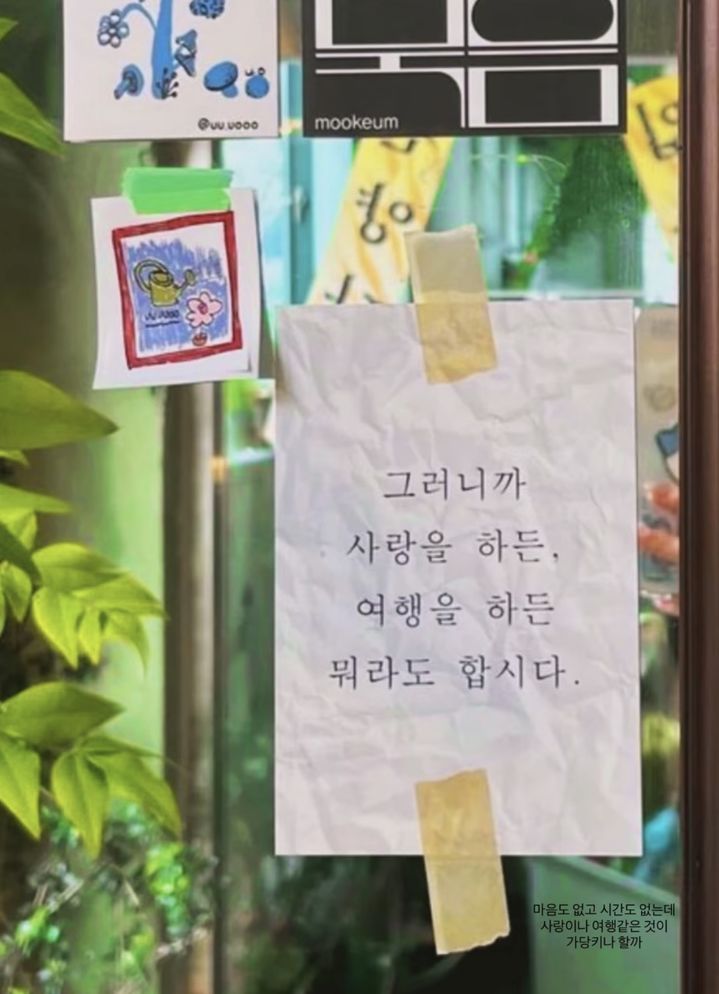 @uu.uooo
mookeum
영
그러니까
사랑을 하든,
여행을 하든
뭐라도 합시다.
마음도 없고 시간도 없는데
사랑이나 여행같은 것이
가당키나 할까